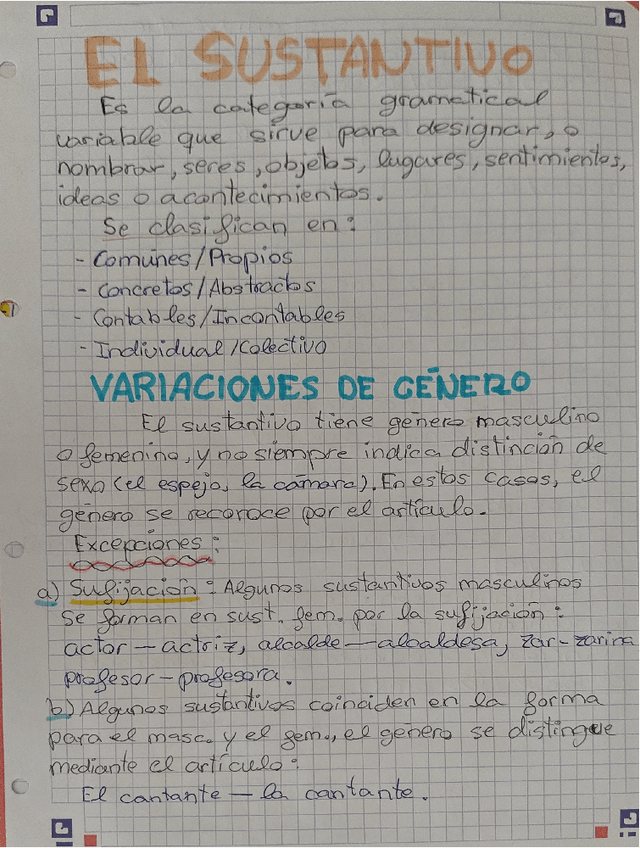 EL SUSTANTIVO
Es la categoría gramatical
variable que sirve para designar, o
nombrar, seres, objetos, lugares, sentimientos,
ideas o acontecimientos.
Se clasifican en:
- Comunes/Propios
- Concretos/Abstractos
- Contables/Incontables
- Individual/Colectivo
VARIACIONES DE GÉNERO
El sustantivo tiene género masculino
o femenino, y no siempre indica distinción de
sexo (el espejo, la cámara). En estos casos, el
género se reconoce por el artículo.
Excepciones:
a) Sufijación: Algunos sustantivos masculinos
se forman en sust. fem. por la sufijación:
actor - actriz, alcalde - alcaldesa, zar - zarina
profesor - profesora.
b) Algunos sustantivos coinciden en la forma
para el masc. y el fem., el género se distingue
mediante el artículo:
El cantante - la cantante.